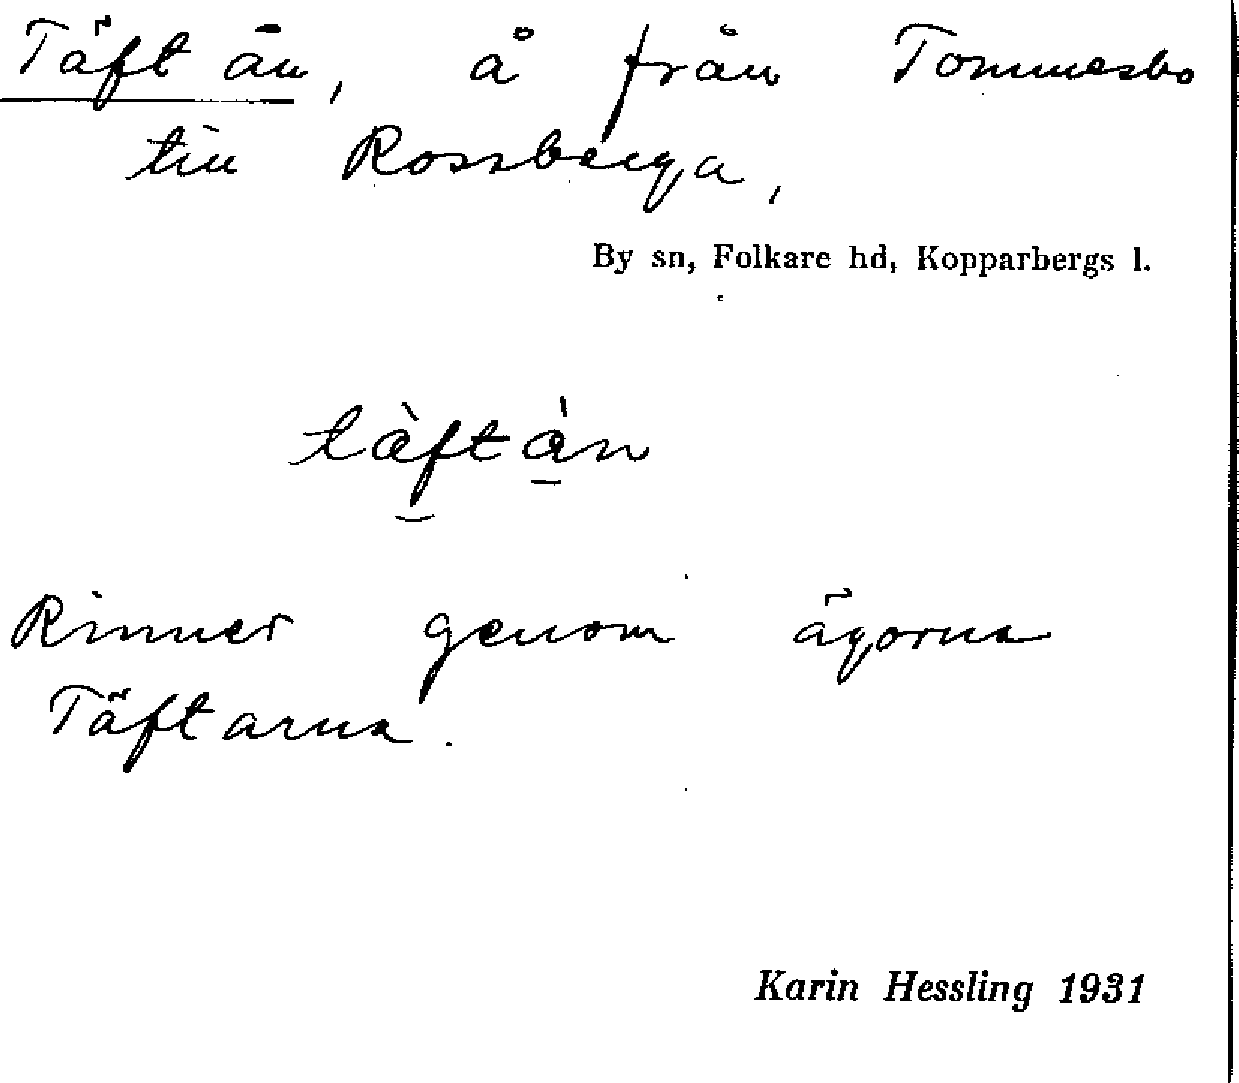 Täftån, å från Tommesbo
till Rossberga,
By sn, Folkare hd, Kopparbergs l.
tä̀ftå̀n
Rinner genom ägorna
Täftarna.
Karin Hessling 1931